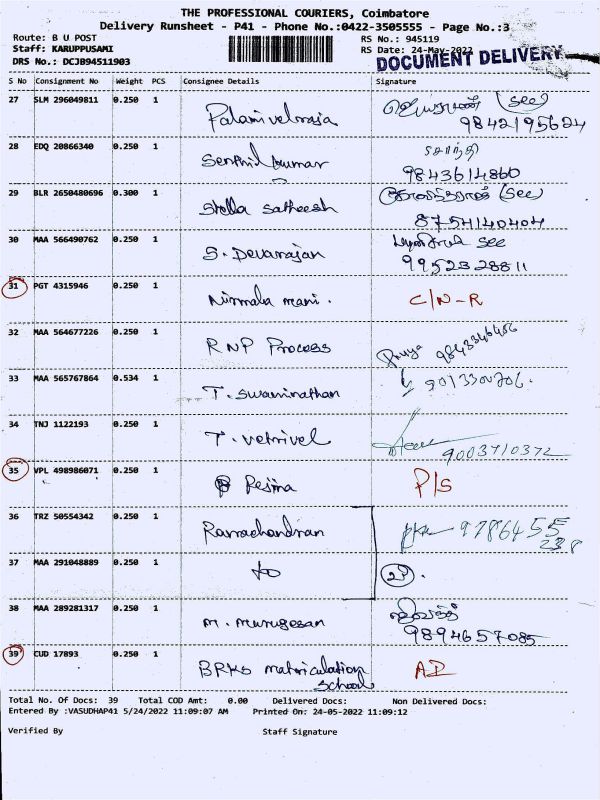 THE PROFESSIONAL COURIERS, Coimbatore
Delivery Runsheet - P41 - Phone No.:0422-3505555 - Page No.:3
Route: B U POST RS No.: 945119
Staff: KARUPPUSAMI RS Date: 24-May-2022
DRS No.: DCJB94511903 DOCUMENT DELIVERY
S No Consignment No Weight PCS Consignee Details Signature
27 SLM 296049811 0.250 1 Palanivelraja (See)
9842195624
28 EDQ 20866340 0.250 1 Senthil kumar
9843614860
29 BLR 2650480696 0.300 1 Stella Satheesh (See)
8754140404
30 MAA 566490762 0.250 1 S. Devarajan See
9952328811
31 PGT 4315946 0.250 1 Nirmala mani. C/N-R
32 MAA 564677226 0.250 1 RNP Process Priya 9843346456
33 MAA 565767864 0.534 1 T. Swaminathan
34 TNJ 1122193 0.250 1 T. Vetrivel
9003710372
35 VPL 498986071 0.250 1 Resina P/S
36 TRZ 50554342 0.250 1 Ramachandran 9786455
238
37 MAA 291048889 0.250 1 to
38 MAA 289281317 0.250 1 M. Murugesan
9894657085
39 CUD 17893 0.250 1 BRKS matriculation AD
School
Total No. Of Docs: 39 Total COD Amt: 0.00 Delivered Docs: Non Delivered Docs:
Entered By :VASUDHAP41 5/24/2022 11:09:07 AM Printed On: 24-05-2022 11:09:12
Verified By Staff Signature